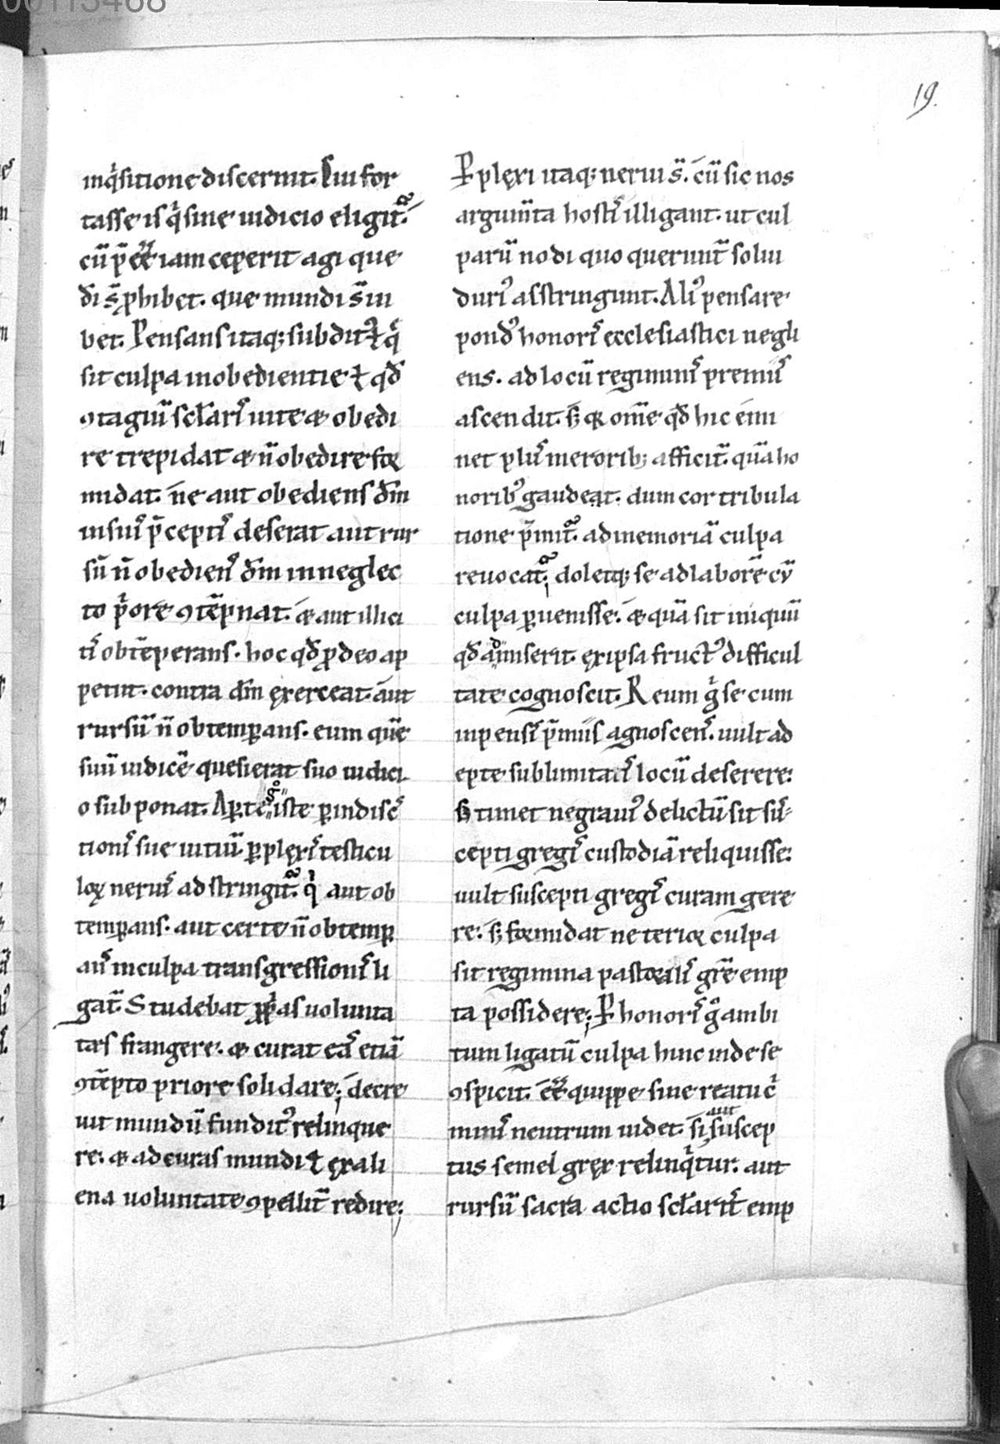 00113468
19.
inq̇sitione discernit. Sui for
tasse is q̇ sine iudicio eligit᷑
cū p̄ee iam ceperit agi que
di͛ s̄ ꝓhibet. que mundi s̄ iu
bet. Pensans itaq; subdit᷑ ⁊ q̇
sit culpa inobedientie ⁊ qd̄
ꝯtagiū sclaris͛ uite & obedi
re trepidat & n̄ obedire foꝛ
midat. ne aut obediens dm̄
in suis͛ p̄ceptis͛ deserat aut rur
sū n̄ obediens͛ dm̄ in neglec
to p̄ore ꝯtēpnat. & aut illici
tis͛ obtēperans. hoc qd̄ ꝓ deo ap
petiit. contra dm̄ exerceat aut
rursū n̄ obtemꝑans. eum quē
suū iudicē quesierat suo iudici
o subponat. Aꝑte iste ꝑ indisc͛
tionis͛ sue uitiū ꝑplexis͛ testicu
loꝝ neruis͛ adstringit᷑ q̇ aut ob
temꝑans. aut certe n̄ obtemꝑ
ans͛ in culpa transgressionis͛ li
gat᷑. Studebat ꝓp̄as uolunta
tes frangere. & curat eas͛ etiā
ꝯtēpto priore solidare; decre
uit mundū fundit᷑ relinque
re. & ad curas mundi ⁊ ex ali
ena uoluntate ꝯpellit᷑ redire;
Ꝑplexi itaq; nerui s̄. cū sic nos
argum̄ta hostis͛ illigant. ut cul
parū nodi quo querunt᷑ solui
duri᷒ asstringunt. Ali᷒ pensare
pond᷒ honoris͛ ecclesiastici negli
ens. ad locū regiminis͛ premiis͛
ascendit. s; q; om̄e qd̄ hic emi
net plus͛ meroribꝫ afficit᷑ quā ho
norib᷒ gaudeat. dum cor tribula
tione p̄mit᷑. ad memoriā culpa
reuocat᷑; doletq; se ad laborē cū
culpa ꝑuenisse. & quā sit iniquū
qd̄ admiserit. ex ipsa fruct᷒ difficul
tate cognoscit. Reum g̊ se cum
inpensis͛ p̄miis agnoscens͛. uult ad
epte sublimitatis͛ locū deserere;
s; timet ne graui᷒ delictū sit sus͛
cepti gregis͛ custodiā reliquisse;
uult suscepti gregis͛ curam gere
re; s; foꝛmidat ne terioꝛ culpa
sit regimina pastoralis͛ grē emp
ta possidere; Ꝑ honoris͛ g̊ ambi
tum ligatū culpa hinc inde se
ꝯspicit. ee quippe sine reatu c͛
minis͛ neutrum uidet. si aut suscep
tus semel grex relinq̇tur. aut
rursū sacra actio sclarit͛ emp